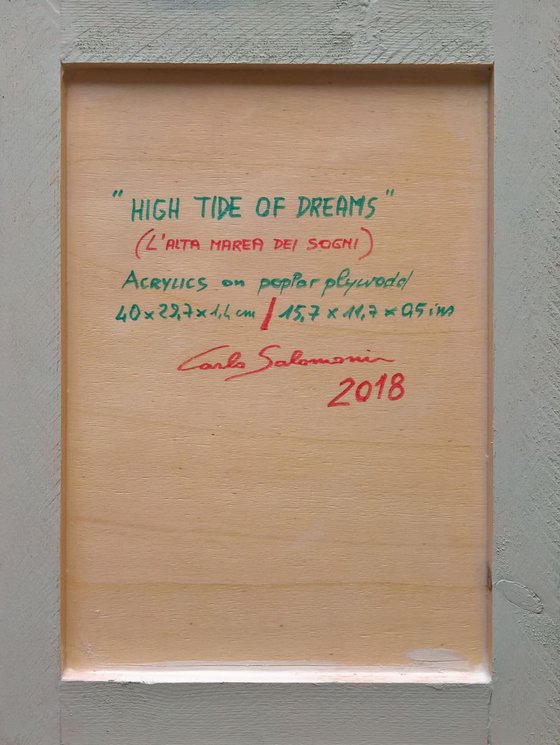 "HIGH TIDE OF DREAMS"
(L'ALTA MAREA DEI SOGNI)
ACRYLICS on poplar plywood
40 x 29,7 x 1,4 cm / 15,7 x 11,7 x 0,5 ins
Carlo Salomoni
2018